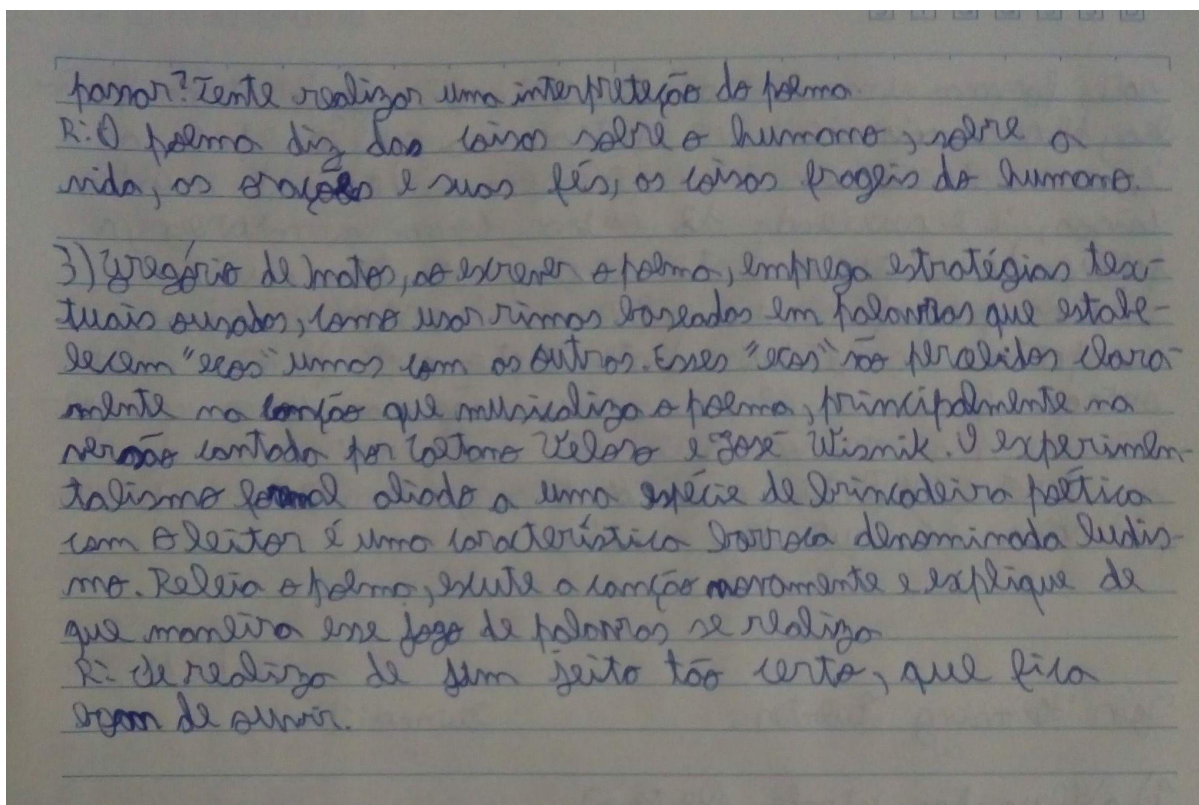 passar? Tente realizar uma interpreteção do poema
R: O poema diz das coisas sobre o humano, sobre a
vida, as orações e suas fés, as coisas frageis do humano.
3) Gregório de Matos, ao escrever o poema, emprega estratégias tex-
tuais ousadas, como usar rimas baseadas em palavras que estabe-
lecem "ecos" umas com as outras. Esses "ecos" são percebidos clara-
mente na canção que musicaliza o poema, principalmente na
versão cantada por Caetano Veloso e José Wisnik. O experimen-
talismo formal aliado a uma espécie de brincadeira poética
com o leitor é uma característica barroca denominada ludis-
mo. Releia o poema, escute a canção novamente e explique de
que maneira esse jogo de palavras se realiza
R: Se realiza de um jeito tão certo, que fica
de ouvir.